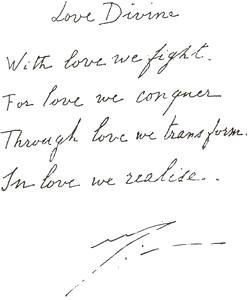 Love Divine
With love we fight.
For love we conquer
Through love we transform.
In love we realise..